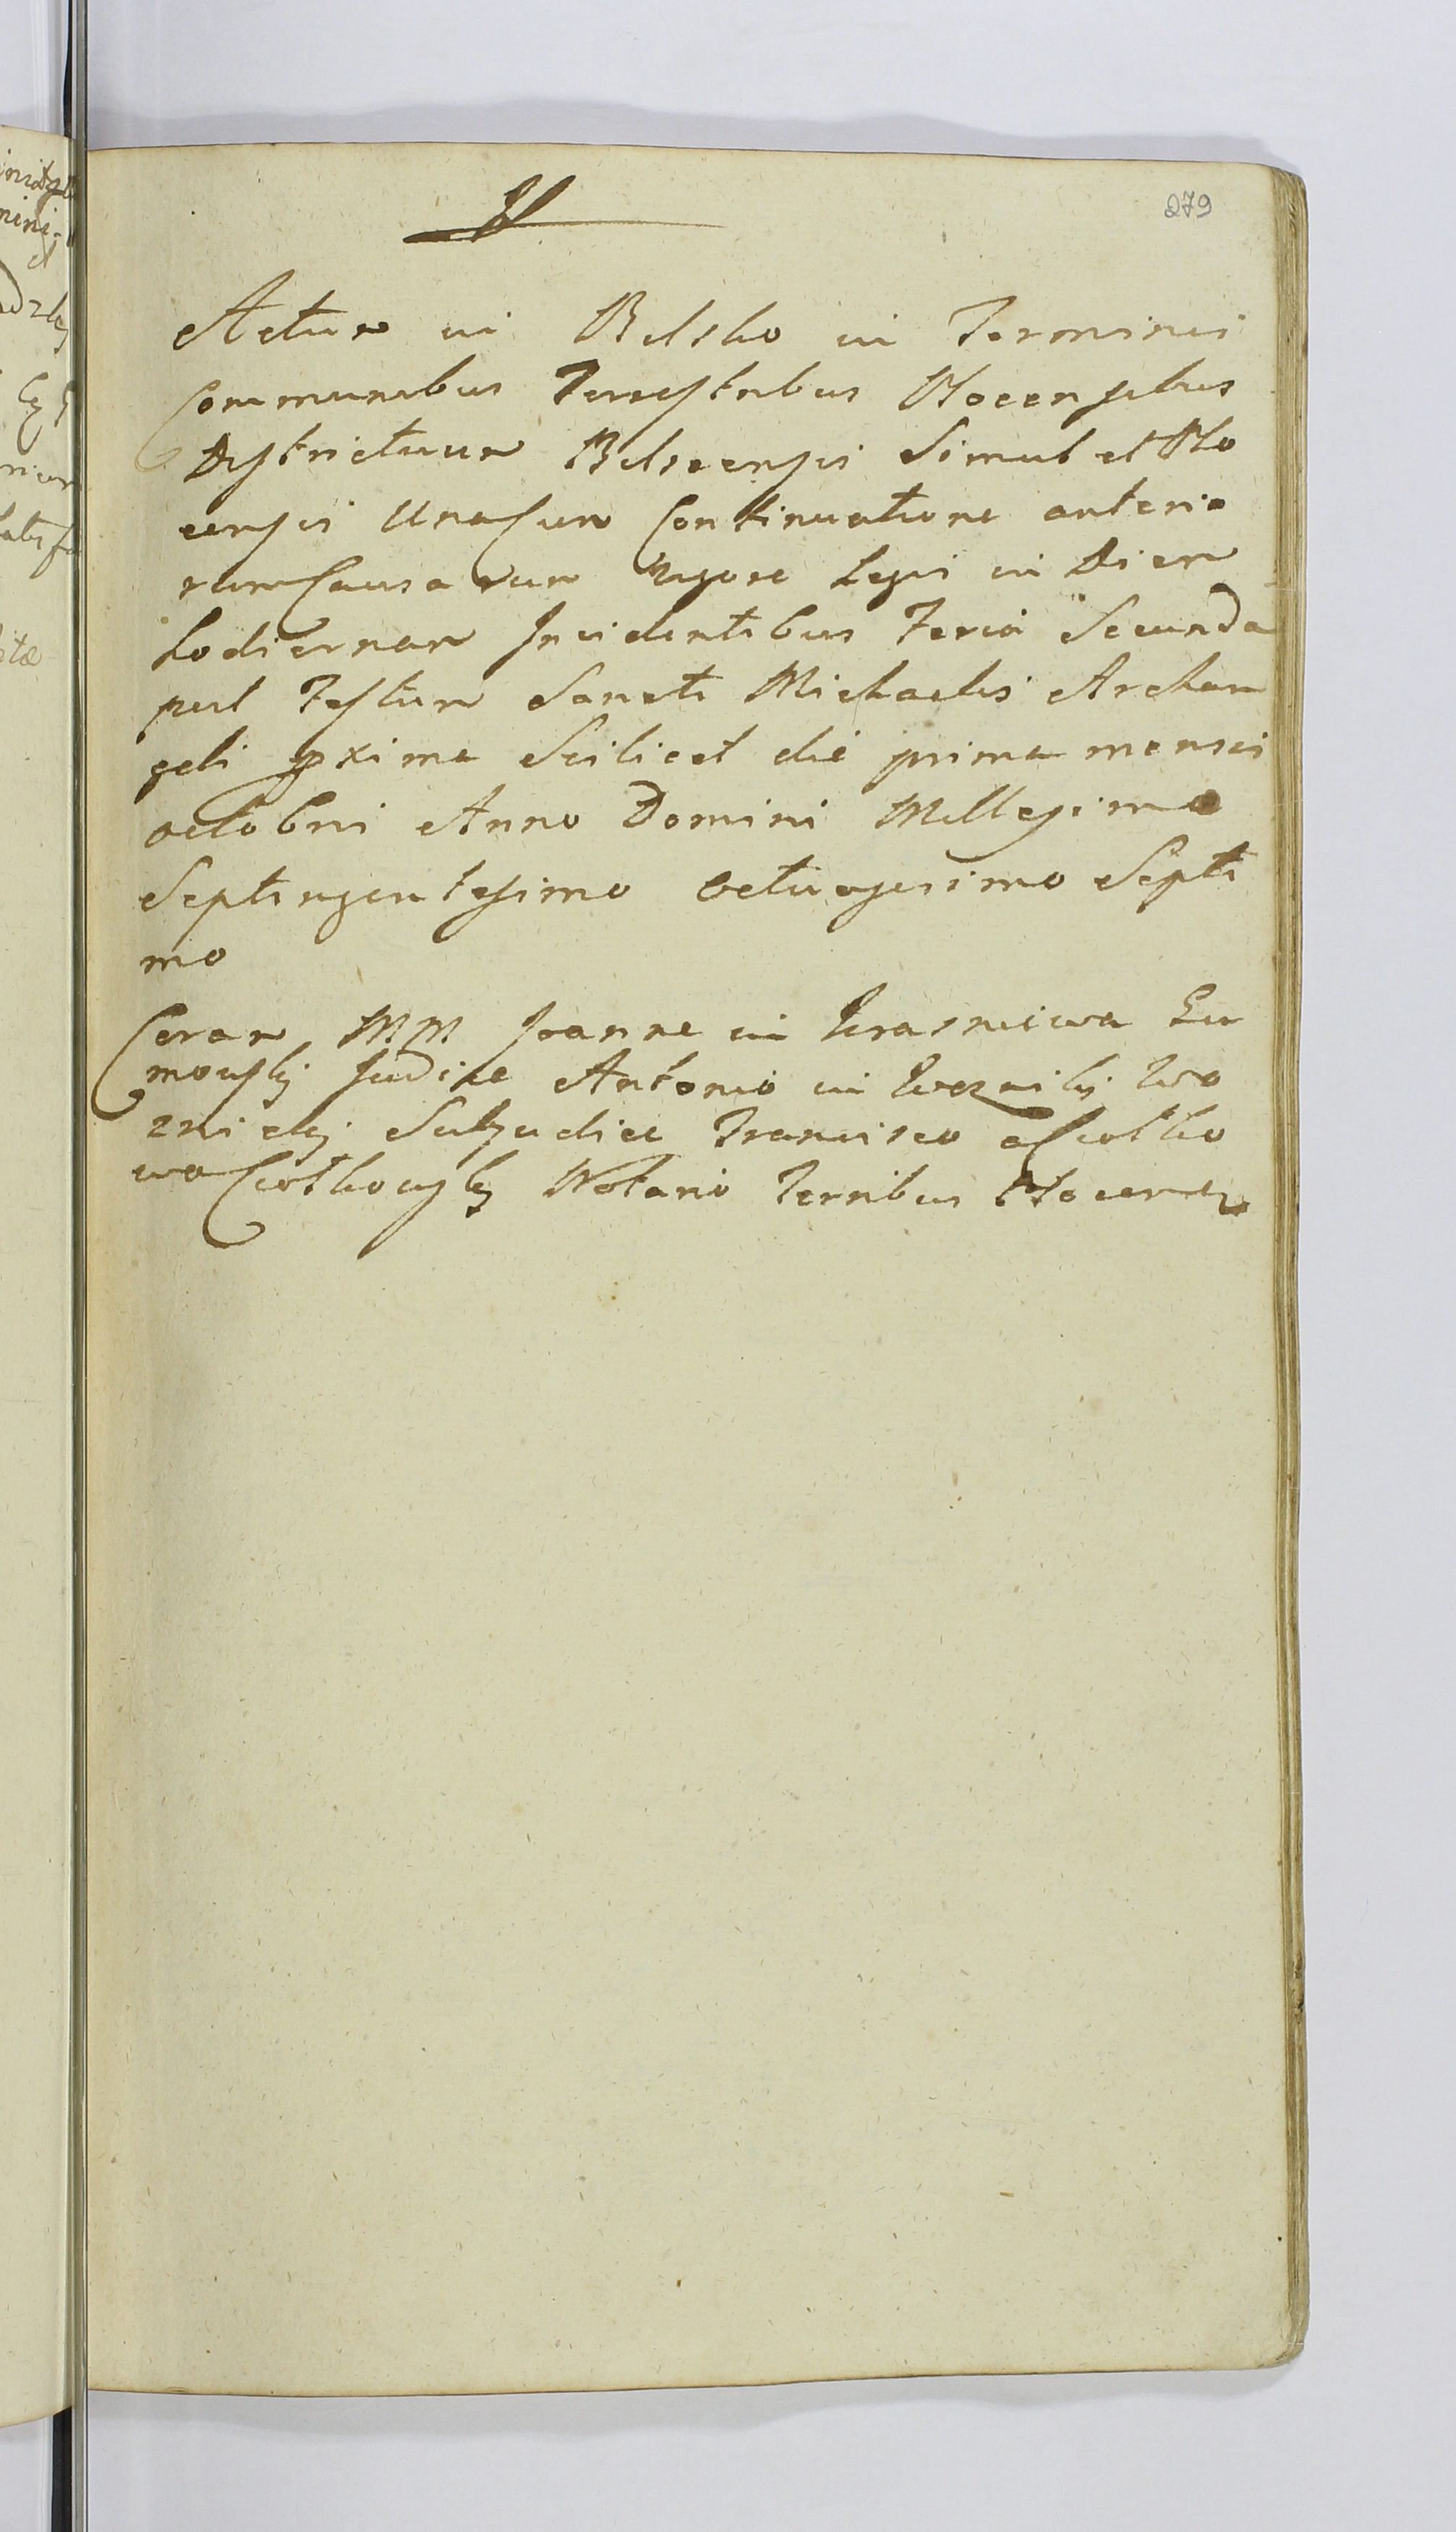 279
Actum in Bielsko in Terminis
Communibus Terrestribus Plocensibus
Districtuum Bielscensis Simul et Plo
censis Una Cum Continuatione anterio
rum Causarum Vigore Legis in Diem
hodiernam Incidentibus Feria Secunda
post Festum Sancti Michaelis Archan
geli pxima Scilicet die prima mensis
octobris Anno Domini Millesimo
Septingentesimo octuagesimo Septi
mo
Coram MM Joanne in
Judice Antonio in
Subjudice Francisco
Notario Terribus Plocen